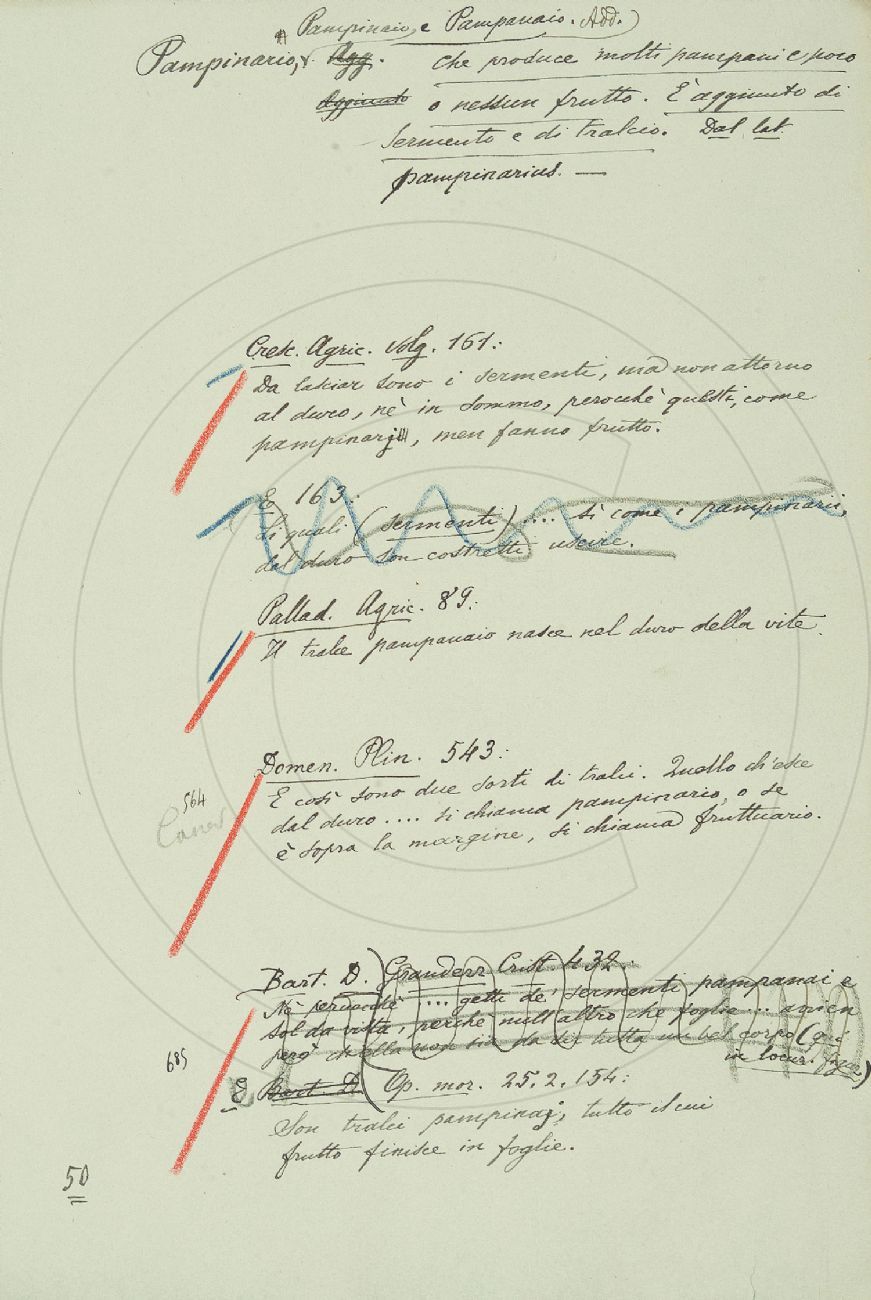 Pampinaio, e Pampanaio. Add.)
Pampinario, Agg. che produce molti pampani e poco
Aggiunto o nessun frutto. È aggiunto di
sermento e di tralcio. Dal lat.
pampinarius. —
Cresc. Agric. volg. 161:
Da lasciar sono i sermenti, ma non attorno
al duro, nè in sommo, perocchè questi, come
pampinarj, men fanno frutto.
E 163:
Li quali (sermenti).... sì come i pampinarii,
dal duro son costretti uscire.
Pallad. Agric. 89:
Il tralce pampanaio nasce nel duro della vite.
Domen. Plin. 543:
564
E così sono due sorti di tralci. Quello ch'esce
dal duro .... si chiama pampinario, o se
è sopra la margine, si chiama fruttuario.
Bart. D. Grandezz. Crist. 432:
Nè perocchè .... getti de' sermenti pampanai e
sol da vista, perchè null'altro che foglie ... avvien
però ch'ella non sia da dir tutta un bel corpo (quì
in locuz. figur.)
685
E Bart. D. Op. mor. 25. 2. 154:
Son tralci pampinaj, tutto il cui
frutto finisce in foglie.
50